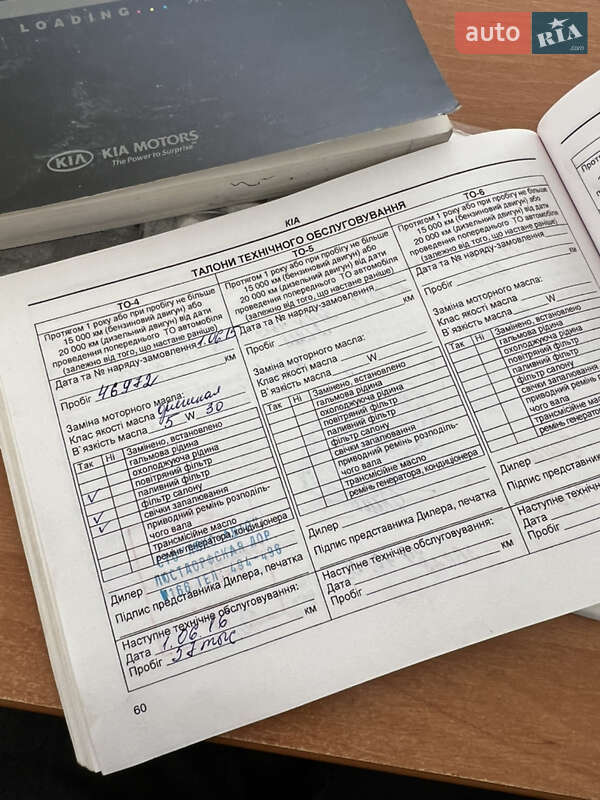 LOADING...
auto RIA.com
KIA KIA MOTORS
The Power to Surprise™
KIA
ТАЛОНИ ТЕХНІЧНОГО ОБСЛУГОВУВАННЯ
ТО-4
Протягом 1 року або при пробігу не більше
15 000 км (бензиновий двигун) або
20 000 км (дизельний двигун) від дати
проведення попереднього ТО автомобіля
(залежно від того, що настане раніше)
Дата та № наряду-замовлення 1.06.15
Пробіг 46972 км
Заміна моторного масла:
Клас якості масла
В`язкість масла 5 W 30
Так Ні Замінено, встановлено
гальмова рідина
охолоджуюча рідина
повітряний фільтр
паливний фільтр
фільтр салону
свічки запалювання
приводний ремінь розподіль-
чого вала
трансмісійне масло
ремінь генератора, кондиціонера
Дилер
ЛЮСТДОРФСКАЯ ДОР
ТЕЛ. 494-498
Підпис представника Дилера, печатка
Наступне технічне обслуговування:
Дата 1.06.16
Пробіг 57 тыс км
ТО-5
Протягом 1 року або при пробігу не більше
15 000 км (бензиновий двигун) або
20 000 км (дизельний двигун) від дати
проведення попереднього ТО автомобіля
(залежно від того, що настане раніше)
Дата та № наряду-замовлення
Пробіг км
Заміна моторного масла:
Клас якості масла
В`язкість масла W
Так Ні Замінено, встановлено
гальмова рідина
охолоджуюча рідина
повітряний фільтр
паливний фільтр
фільтр салону
свічки запалювання
приводний ремінь розподіль-
чого вала
трансмісійне масло
ремінь генератора, кондиціонера
Дилер
Підпис представника Дилера, печатка
Наступне технічне обслуговування:
Дата
Пробіг км
ТО-6
Протягом 1 року або при пробігу не більше
15 000 км (бензиновий двигун) або
20 000 км (дизельний двигун) від дати
проведення попереднього ТО автомобіля
(залежно від того, що настане раніше)
Дата та № наряду-замовлення
Пробіг км
Заміна моторного масла:
Клас якості масла
В`язкість масла W
Так Ні Замінено, встановлено
гальмова рідина
охолоджуюча рідина
повітряний фільтр
паливний фільтр
фільтр салону
свічки запалювання
приводний ремінь
чого вала
трансмісійне масло
ремінь генератора
Дилер
Підпис представника
Наступне технічне
Дата
Пробіг
60